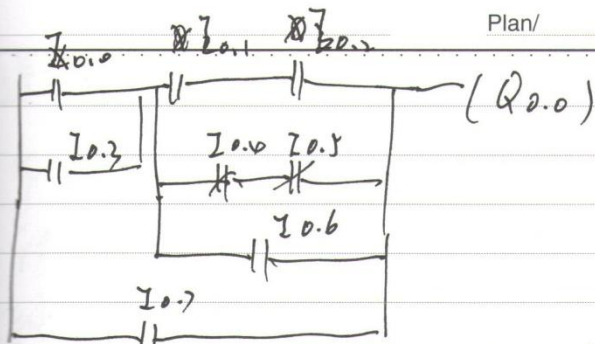 Plan/
I0.0 I0.1 I0.2
(Q0.0)
I0.3 I0.4 I0.5
I0.6
I0.7